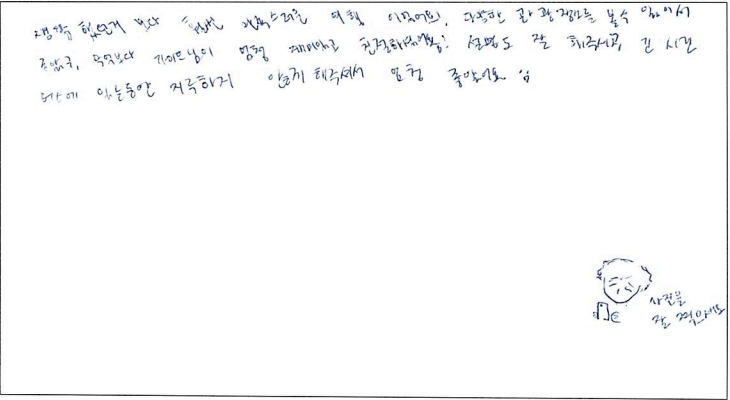 생각 했던거 보다 훨씬 만족스러운 여행 이였어요!, 다양한 관광지를 볼수 있어서
좋았구, 무엇보다 가이드님이 엄청 재미있고 친절하셨어요! 설명도 잘 해주시고, 긴 시간
차에 있는동안 지루하지 않게 해주셔서 엄청 좋았어요
사진을
잘 찍으세요